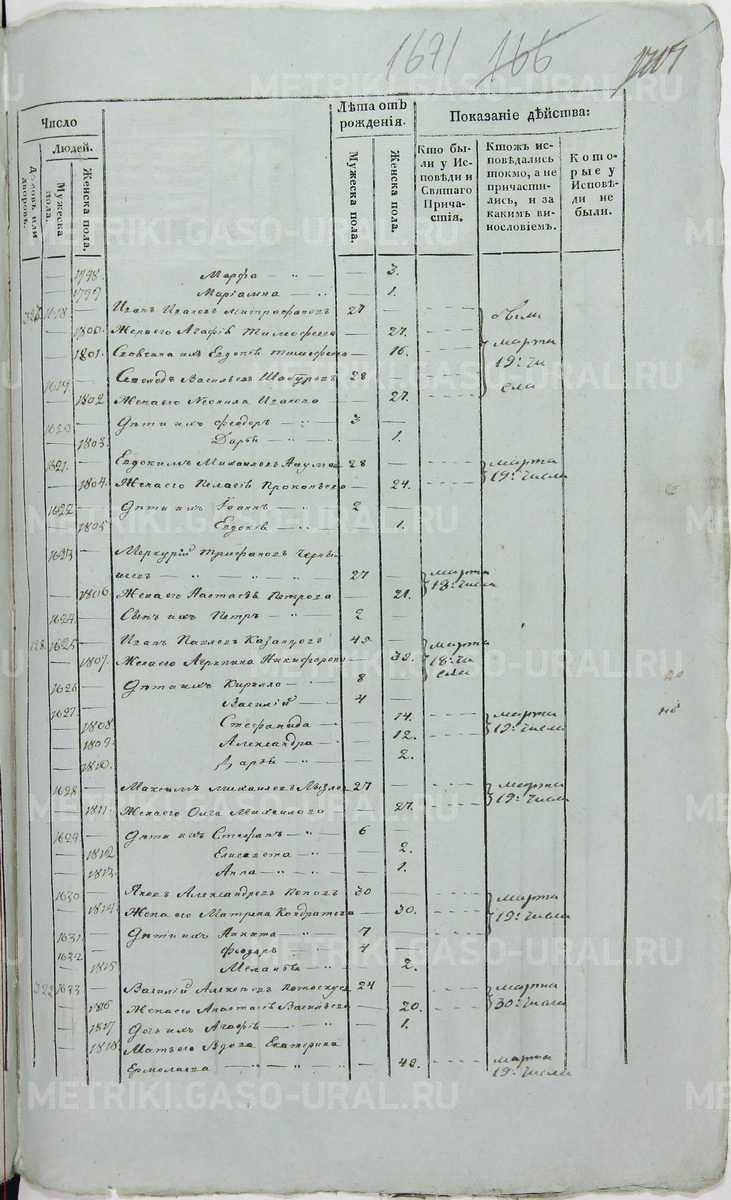 1671 166
Число
Людей.
Домовъ или дворовъ.
Мужеска пола.
Женска пола.
Лѣта отъ рожденія.
Мужеска пола.
Женска пола.
Показаніе дѣйства:
Кто бы-
ли у Ис-
повѣди и
Святаго
Прича-
стія.
Ктожъ ис-
повѣдались
токмо, а не
причасти-
лись, и за
какимъ ви-
нословіемъ.
Кото-
рые у
Исповѣ-
ди не
были.
1798. Марфа — 3.
1799 Маріамна 1.
1618. Иванъ Ивановъ Митрофановъ 27
1800. Жена его Агафія Тимофеева 27.
1801. Евдокія Тимофеева 16. марта 19: чи
сла
1619. Васильевъ 28
1802 Жена его Неонила Иванова 27.
1620 Дѣти ихъ Феодоръ 3
1803. Дарья 1.
1621. Евдокимъ Михайловъ 28 марта
1804. Жена его Пелагія Прокопьева 24. 19: числа
1622 Дѣти ихъ Іоаннъ 2
1805 Евдокія 1.
1623 Меркурій Трифановъ Черны-
шевъ 27 марта
18: числа
1806. Жена его Настасья Петрова 21.
1624 Сынъ ихъ Петръ 2
1625 Иванъ Павловъ Казанцовъ 45 марта
1807. Жена его Агрипина Никифорова 39. 18: чи
сла
1626 Дѣти ихъ Кирилло 8
1627. Василій 4
1808. Стефанида 14. марта
1809. Александра 12. 19: числа
1810. Дарья 2.
1628 Максимъ Михайловъ 27 марта
19: числа
1811. Жена его Олга Михайлова 27.
1629 Дѣти ихъ Стефанъ 6
1812 Елисавета 2.
1813. Анна 1.
1630 Яковъ Александровъ Поповъ 30 марта
1814. Жена его Матрена Кондратева 30. 19: числа
1631. Дѣти ихъ Никита 7
1632 Феодоръ 4
1815 Меланья 2.
322 1633 Василій Алексѣевъ Потоскуевъ 24 марта
1816 Жена его Анастасія Васильева 20. 30: числа
1817 Дочь ихъ Агафія 1.
1818. Мать его Вдова Екатерина
Ермолаева 49. марта
19: числа
METRIKI.GASO-URAL.RU